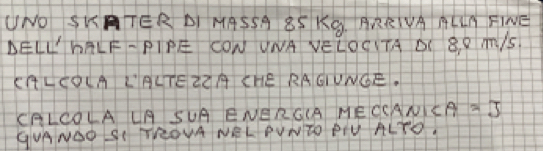 UNO SKATER DI MASSA 85 Kg ARRIVA ALLA FINE
DELL' HALF-PIPE CON UNA VELOCITA DI 8,0 m/s.
CALCOLA L'ALTEZZA CHE RAGIUNGE.
CALCOLA LA SUA ENERGIA MECCANICA = J
QUANDO SI TROVA NEL PUNTO PIU ALTO.